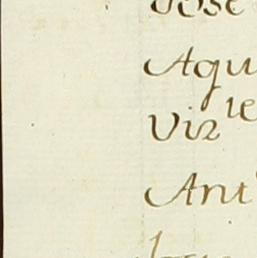 Jose
Aqu
Viz^le
Ant